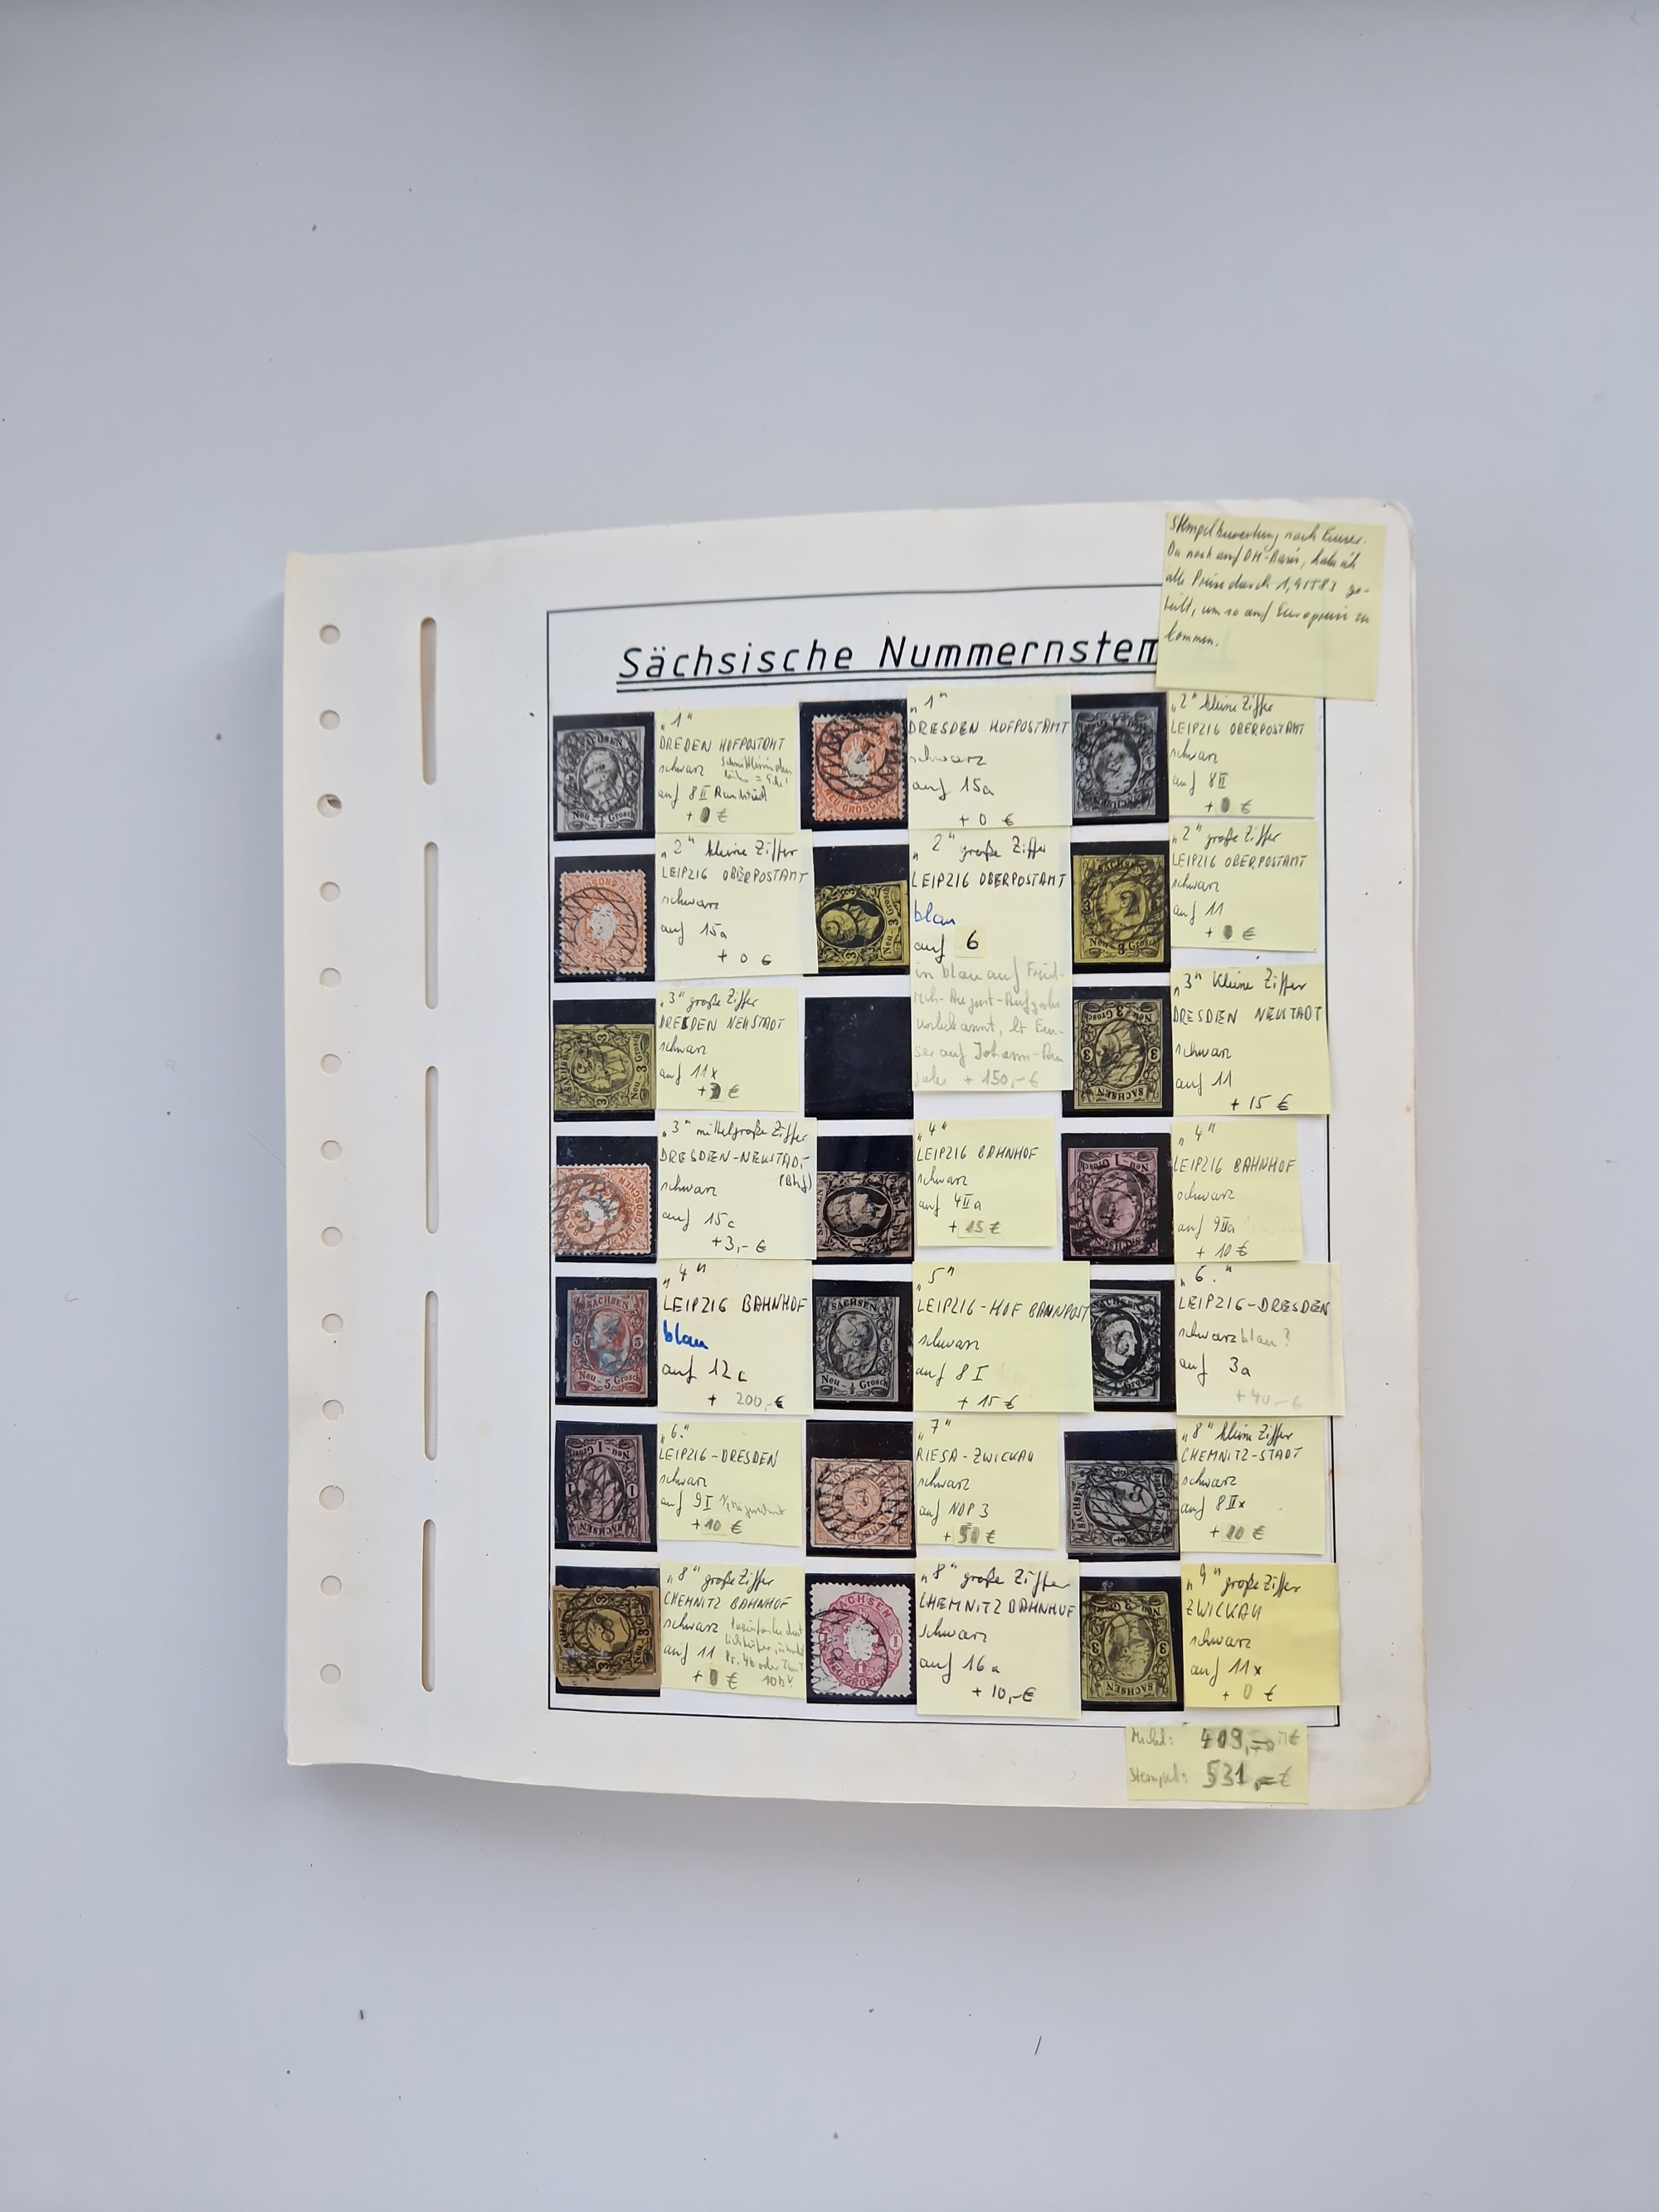 Stempelbewertung nach Euser.
Da noch auf DM-Basis, habe ich
alle Preise durch 1,95583 ge-
teilt, um so auf Europreise zu
kommen.
Sächsische Nummernstem
„1"
DREDEN HOFPOSTAMT
schwarz
auf 8 II Randstück
+ 0 €
„1"
DRESDEN HOFPOSTAMT
schwarz
auf 15a
+ 0 €
„2" kleine Ziffer
LEIPZIG OBERPOSTAMT
schwarz
auf 8 II
+ 0 €
„2" kleine Ziffer
LEIPZIG OBERPOSTAMT
schwarz
auf 15a
+ 0 €
„2" große Ziffer
LEIPZIG OBERPOSTAMT
blau
auf 6
in blau auf Fried-
rich-August-Ausgabe
unbekannt, lt Eu-
ser auf Johann-Aus
gabe + 150,- €
„2" große Ziffer
LEIPZIG OBERPOSTAMT
schwarz
auf 11
+ 0 €
„3" große Ziffer
DRESDEN NEUSTADT
schwarz
auf 11x
+ €
„3" Kleine Ziffer
DRESDEN NEUSTADT
schwarz
auf 11
+ 15 €
„3" mittelgroße Ziffer
DRESDEN-NEUSTADT
(Bhf)
schwarz
auf 15c
+3,- €
„4"
LEIPZIG BAHNHOF
schwarz
auf 4IIa
+ 15 €
„4"
LEIPZIG BAHNHOF
schwarz
auf 9IIa
+ 10 €
„4"
LEIPZIG BAHNHOF
blau
auf 12c
+ 200,- €
„5"
LEIPZIG-HOF BAHNPOST
schwarz
auf 8 I
+ 15 €
„6."
LEIPZIG-DRESDEN
schwarzblau?
auf 3a
+40,- €
„6."
LEIPZIG-DRESDEN
schwarz
auf 9I
+10 €
„7"
RIESA-ZWICKAU
schwarz
auf NDP 3
+ 50 €
„8" kleine Ziffer
CHEMNITZ-STADT
schwarz
auf 8IIx
+ 10 €
„8" große Ziffer
CHEMNITZ BAHNHOF
schwarz
auf 11
+ 0 €
„8" große Ziffer
CHEMNITZ BAHNHOF
schwarz
auf 16a
+ 10,- €
„9" große Ziffer
ZWICKAU
schwarz
auf 11x
+ 0 €
Michel: 409,- M€
Stempel: 531,- €